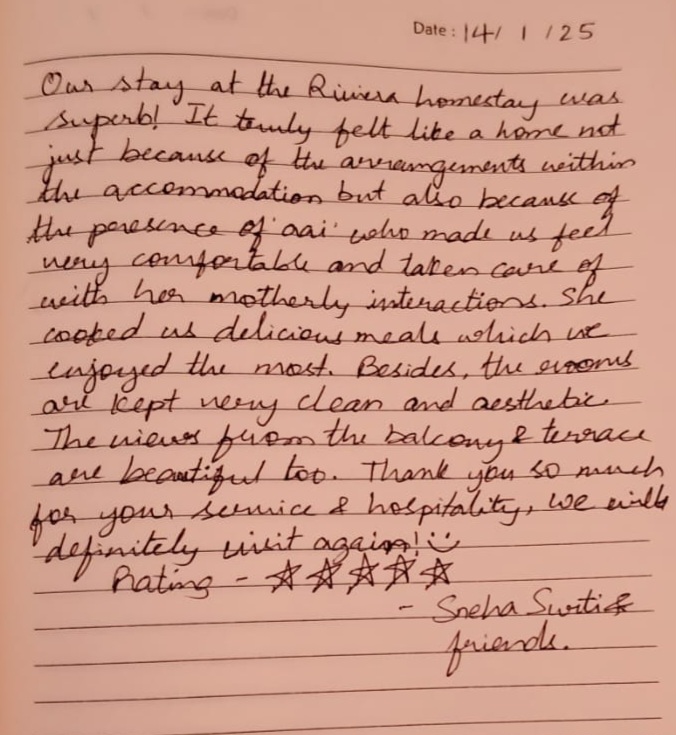 Date : 14/ 1 /25
Our stay at the Riviera homestay was
superb! It truly felt like a home not
just because of the arrangements within
the accommodation but also because of
the presence of 'aai' who made us feel
very comfortable and taken care of
with her motherly interactions. She
cooked us delicious meals which we
enjoyed the most. Besides, the rooms
are kept very clean and aesthetic.
The views from the balcony & terrace
are beautiful too. Thank you so much
for your service & hospitality, we will
definitely visit again! :)
Rating - ☆ ☆ ☆ ☆ ☆
- Sneha &
friends.